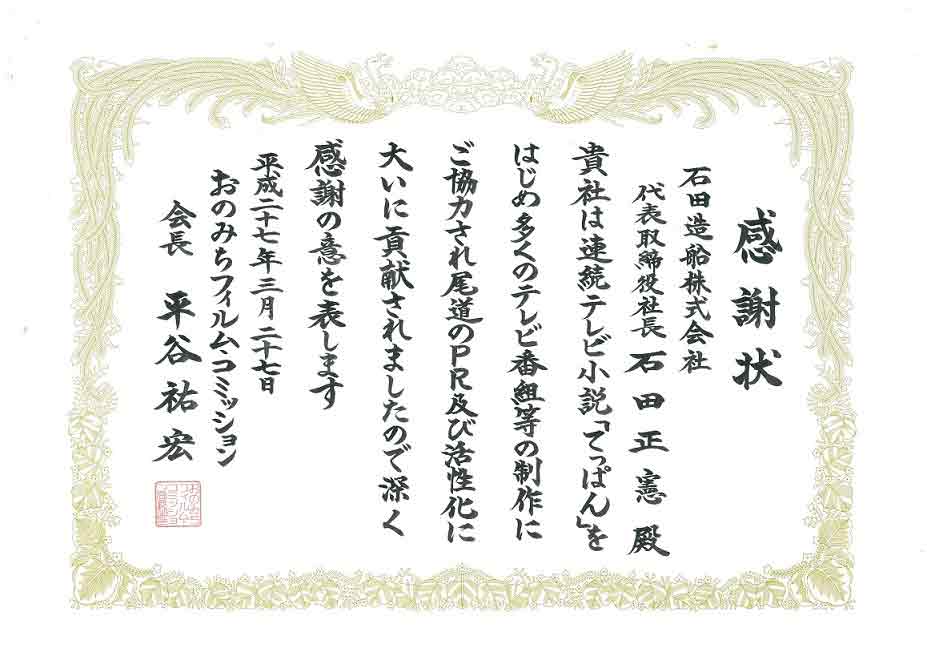 感謝状
石田造船株式会社
代表取締役社長 石田正憲 殿
貴社は連続テレビ小説「てっぱん」を
はじめ多くのテレビ番組等の制作に
ご協力され尾道のPR及び活性化に
大いに貢献されましたので深く
感謝の意を表します
平成二十七年三月二十七日
おのみちフィルム・コミッション
会長 平谷祐宏